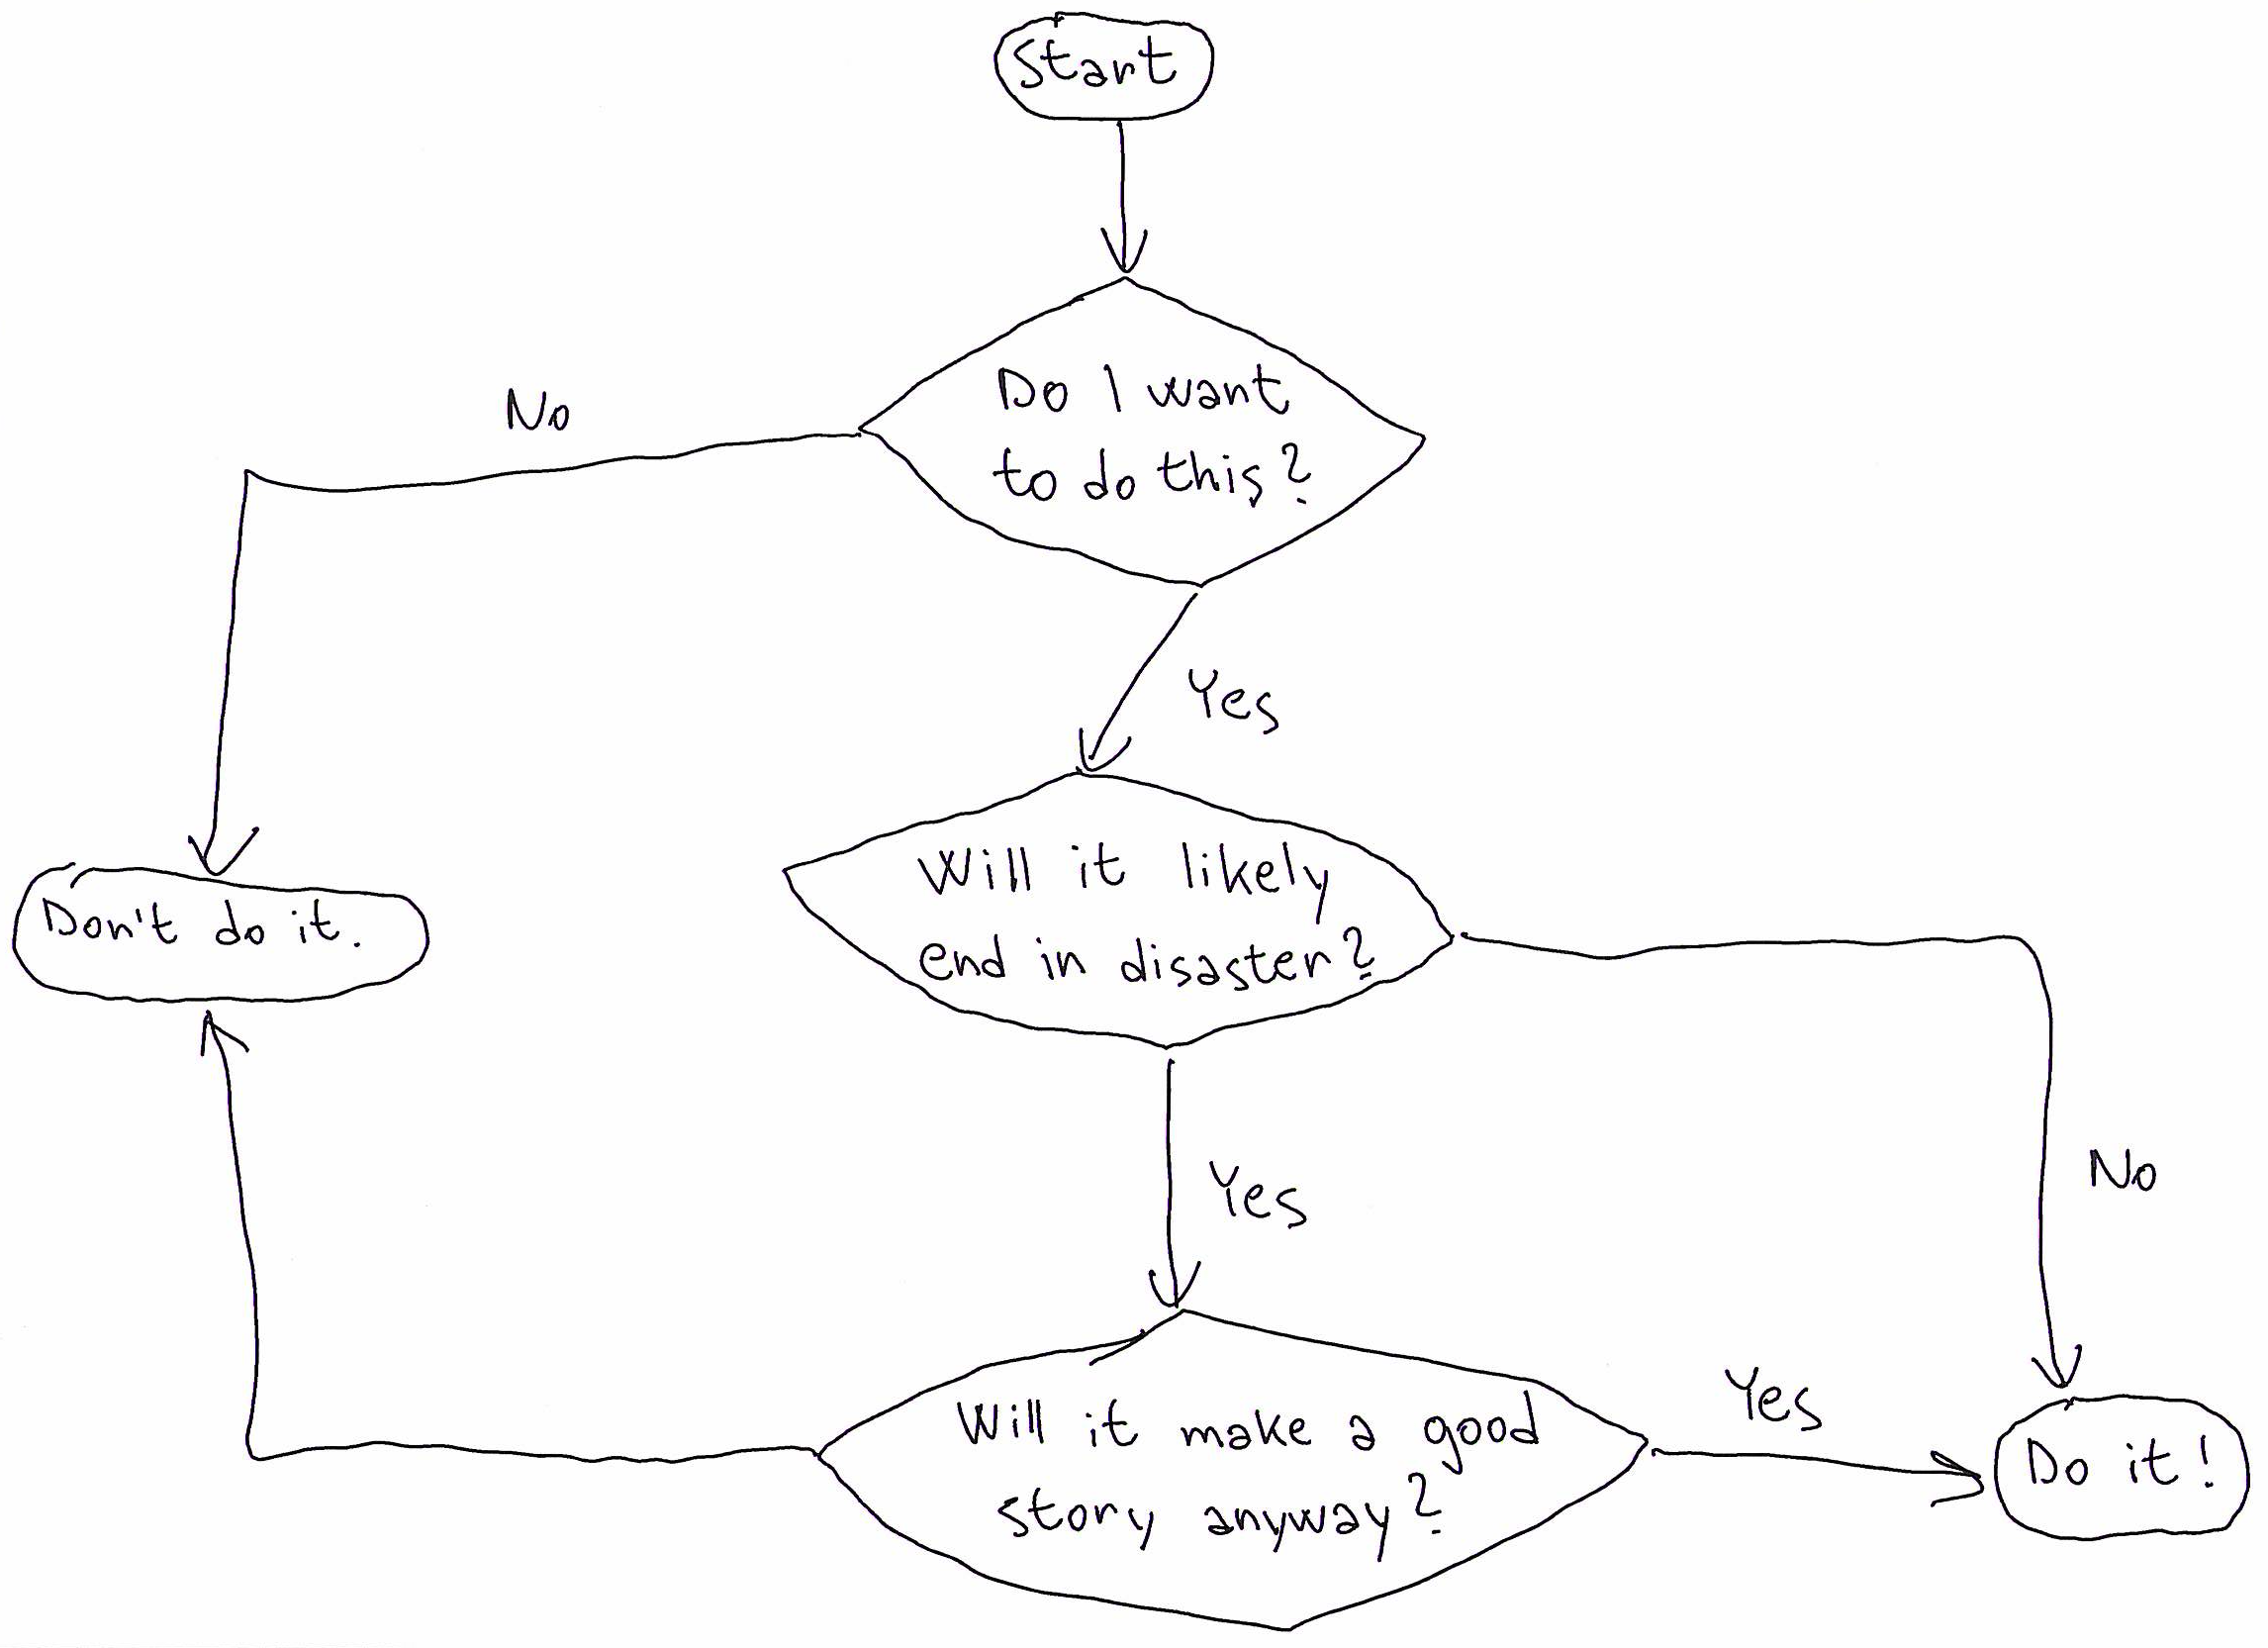 Start
Do I want
to do this?
No
Yes
Will it likely
end in disaster?
Don't do it.
No
Yes
Will it make a good
story, anyway?
Yes
Do it!